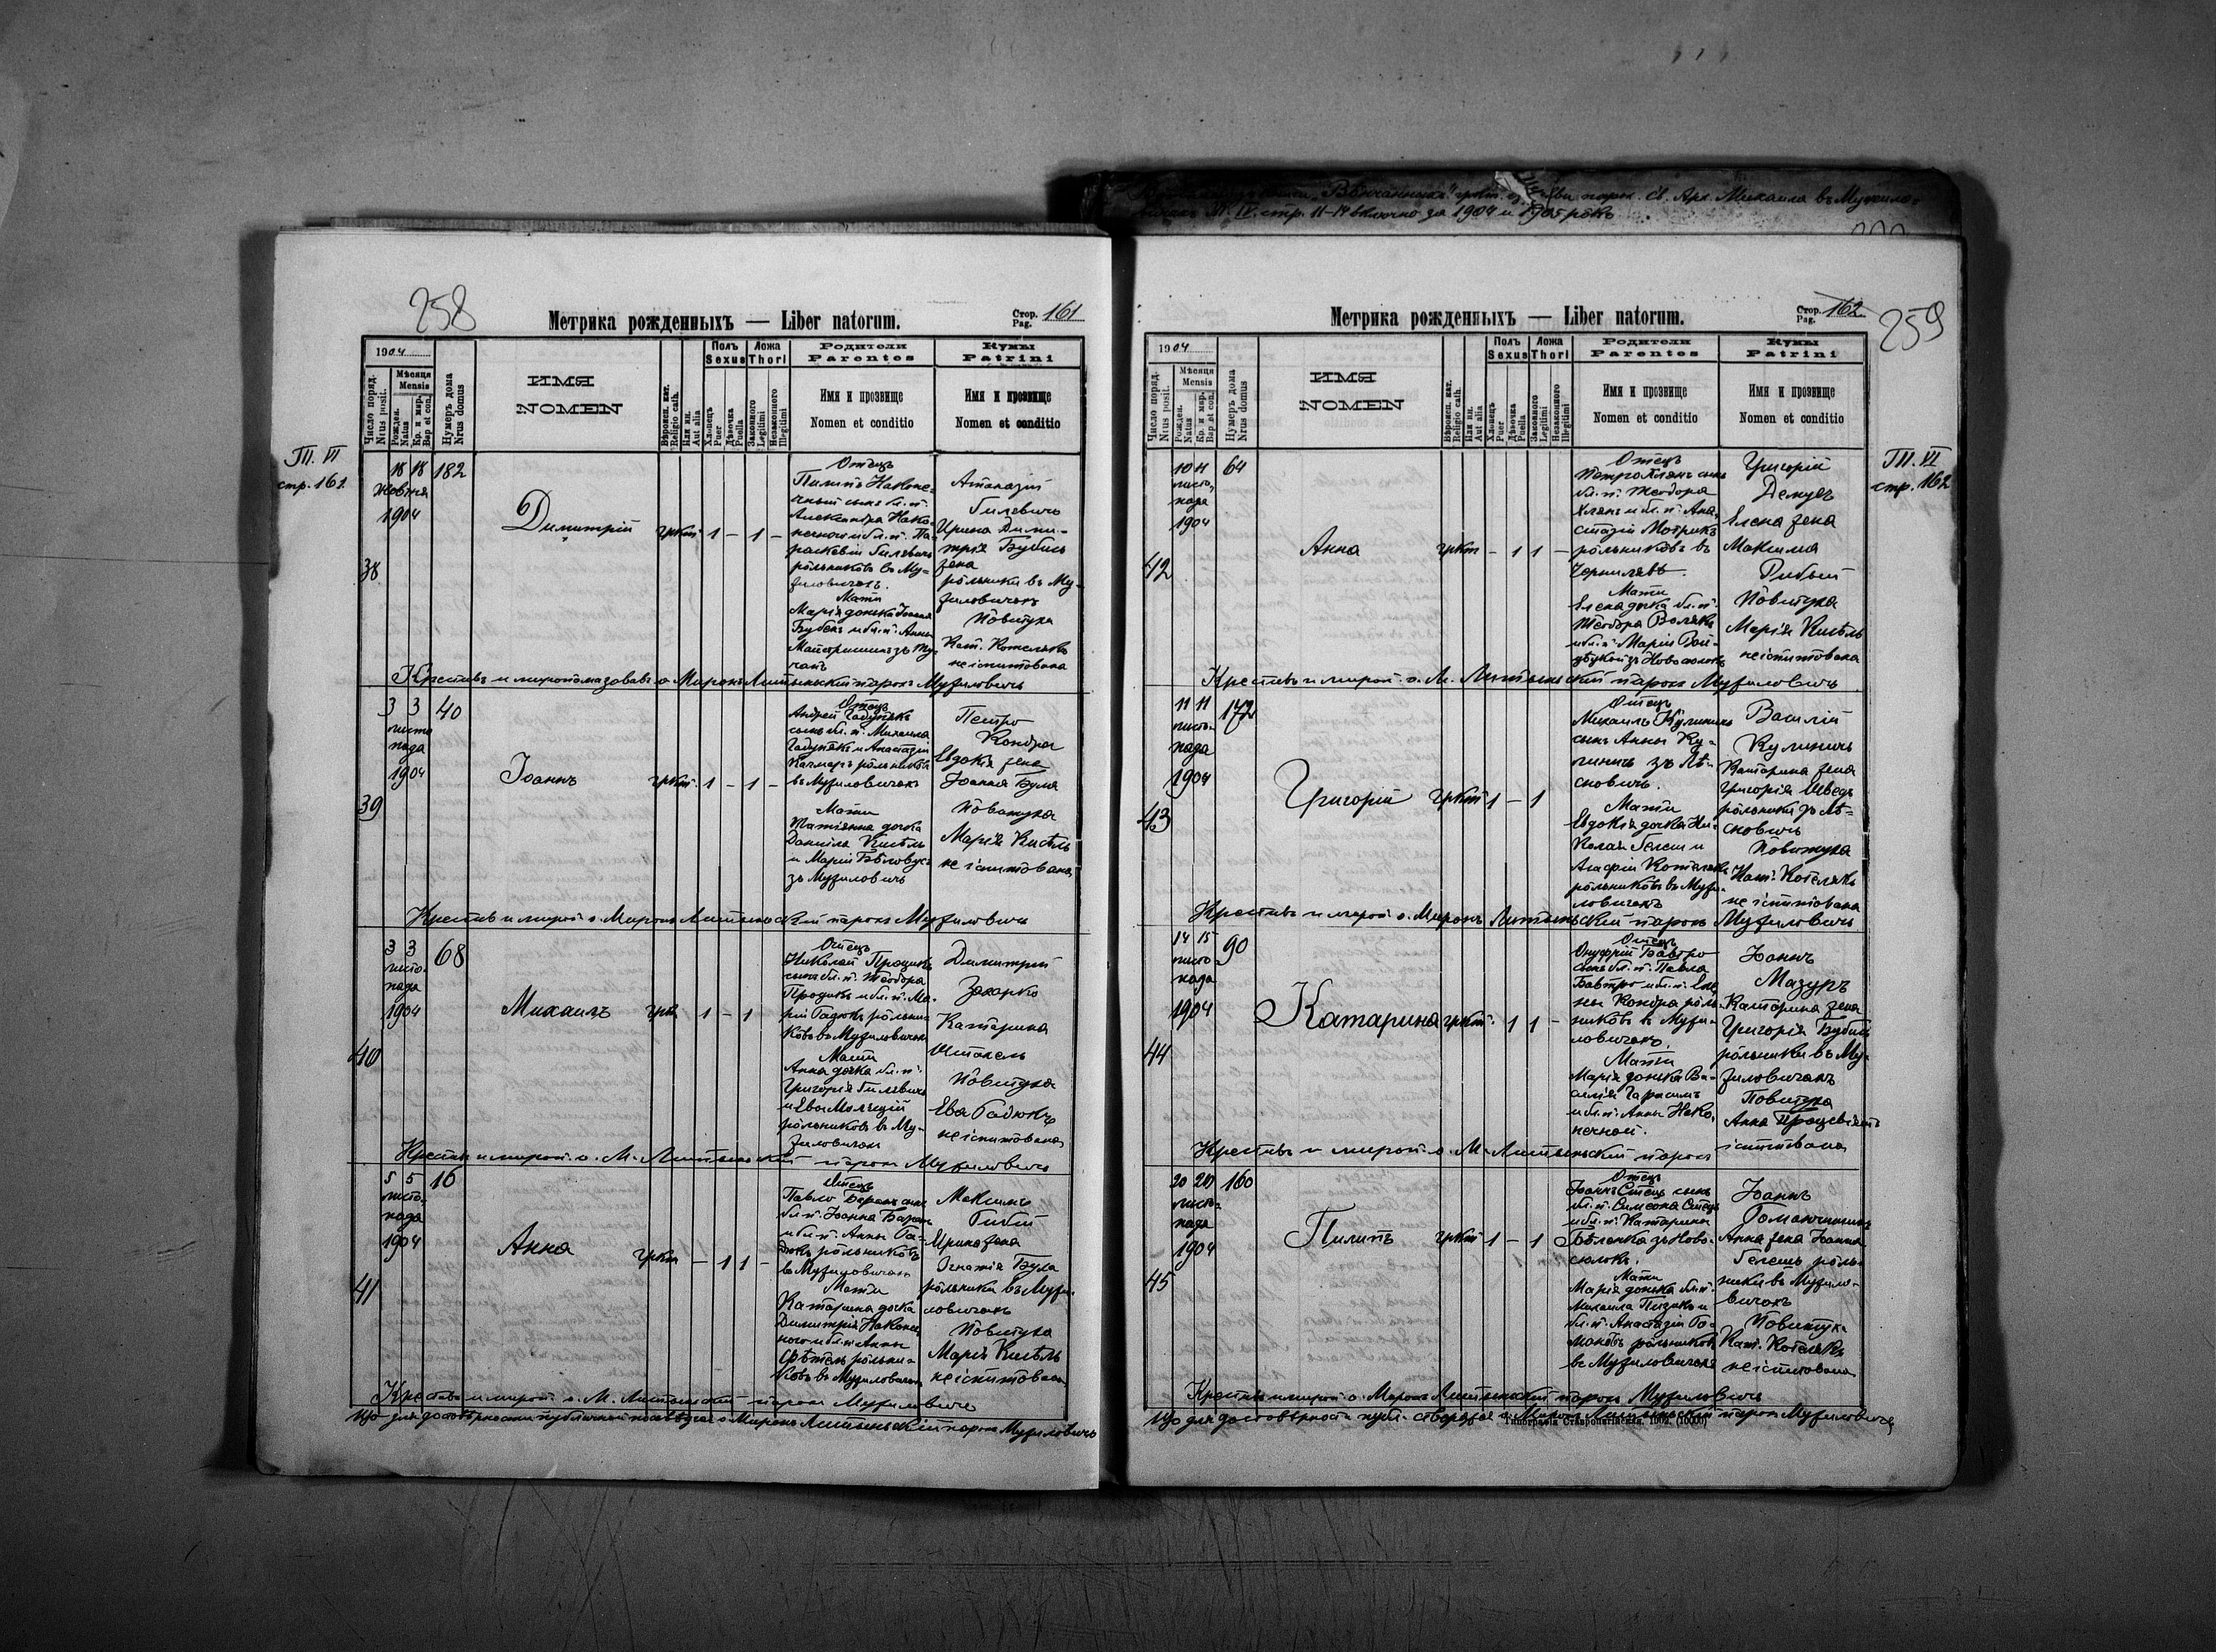 258
Метрика рожденныхъ — Liber natorum.
Стор. 161
Pag.
1904
Число поряд.
Nrus posit.
Мѣсяця
Mensis
Рожден.
Natus
Кр. и мир.
Bap et con.
Нумеръ дома
Nrus domus
ИМЯ
NOMEN
Вѣроисп. кат.
Religio cath.
Или ин.
Aut alia
Полъ
Sexus
Хлопецъ
Puer
Дѣвочка
Puella
Ложа
Thori
Законного
Legitimi
Незаконного
Illegitimi
Родители
Parentes
Имя и прозвище
Nomen et conditio
Кумы
Patrini
Имя и прозвище
Nomen et conditio
Т. VI
стр. 161
38
18 18 182
жовтня
1904
Димитрій
гркт 1 – 1 –
Отець
Пилипъ Наконе-
чный сынъ бл. п.
Александра Нако-
нечного и бл. п. Па-
раскевіи Гилевичъ
рôльникôвъ въ Му-
зиловичахъ.
Мати
Марія донька Іоанна
Бубелъ и бл. п. Анны
Атаназій
Гилевичъ
Ирина Дими-
трія Бубисъ
жена
рôльники въ Му-
зиловичахъ
Повитуха
Кат. Котелякъ
неіспитована
Крестивъ и миропомазовавъ о. Миронъ Литынскій парохъ Музиловичъ
39
3 3 40
листо
пада
1904
Іоаннъ
гркт. 1 – 1 –
Отець
Андрей Гадупякъ
сынъ бл. п. Михаила
Гадупякъ и Анастазіи
Качмаръ рôльникôвъ
въ Музиловичахъ
Мати
Татіянна дочка
Даніила Кисѣль
и Маріи Бѣловусъ
зъ Музиловичъ
Петро
Кондра
Евдокія жена
Іоанна Була
Повитуха
Марія Кисѣль
не іспитована
Крестивъ и мироп. о. Миронъ Литынскій парохъ Музиловичъ
40
3 3 68
листо-
пада
1904
Михаилъ
гркт 1 – 1
Отець
Николай Процикъ
сынъ бл. п. Теодора
Процикъ и бл. п. Ма-
ріи Гадюкъ рôльни-
кôвъ въ Музиловичахъ
Мати
Анна дочка бл. п.
Григорія Гилевичъ
и Евы Малецкій
рôльникôвъ въ Му-
зиловичахъ
Димитрій
Захарко
Катарина
Штокель
Повитуха
Ева Гадюкъ
неіспитована
Крестивъ и мироп. о. М. Литынскій парохъ Музиловичъ
41
5 5 16
листо-
пада
1904
Анна
гркт – 1 1 –
Отець
Павло Баранъ сынъ
бл. п. Іоанна Баранъ
и бл. п. Анны Га-
дюкъ рôльникôвъ
въ Музиловичахъ
Мати
Катарина дочка
Димитрія Наконеч-
ного и бл. п. Анны
рôльни-
кôвъ въ Музиловичахъ
Максимъ
Гибій
Ирина жена
Игнатія Була
рôльники въ Музи-
ловичахъ
Повитуха
Марія Кисѣль
неіспитована
Крестивъ и мироп. о. М. Литынскій парохъ Музиловичъ
що для достовѣрности публичной посвѣдчає о. Миронъ Литынскій парохъ Музиловичъ
въ Музило-
вичахъ Т. IV. стр. 11-14 включно за 1904 и 1905 рôкъ
Метрика рожденныхъ — Liber natorum.
Стор. 162
Pag.
259
1904
Число поряд.
Nrus posit.
Мѣсяця
Mensis
Рожден.
Natus
Кр. и мир.
Bap et con.
Нумеръ дома
Nrus domus
ИМЯ
NOMEN
Вѣроисп. кат.
Religio cath.
Или ин.
Aut alia
Полъ
Sexus
Хлопецъ
Puer
Дѣвочка
Puella
Ложа
Thori
Законного
Legitimi
Незаконного
Illegitimi
Родители
Parentes
Имя и прозвище
Nomen et conditio
Кумы
Patrini
Имя и прозвище
Nomen et conditio
Т. VI
стр. 162
42
10 11 64
листо-
пада
1904
Анна
гркт – 1 1 –
Отець
Петро Хлянъ сынъ
бл. п. Теодора
Хлянъ и бл. п. Ана-
стазіи Мотрикъ
рôльникôвъ въ
Чернилявѣ.
Мати
Елена дочка бл. п.
Теодора Волякъ
и бл. п. Маріи Вой-
зъ Новосюлокъ
Григорій
Демуръ
Елена жена
Максима
Рибый
Повитуха
Марія Кисѣль
неіспитована
Крестивъ и мироп. о. М. Литынскій парохъ Музиловичъ
43
11 11 172
листо-
пада
1904
Григорій
гркт 1 – 1
Отець
Михаилъ Кулиничъ
сынъ Анны Ку-
линичъ зъ Лѣ-
сновичъ.
Мати
Евдокія дочка Ни-
колая Гелеш и
Агафіи Котелякъ
рôльникôвъ въ Музи-
ловичахъ
Василій
Кулиничъ
Катарина жена
Григорія Шведъ
рôльники зъ Лѣ-
сновичъ
Повитуха
Кат. Котелякъ
не іспитована
Крестивъ и мироп. о. Миронъ Литынскій парохъ Музиловичъ
44
14 15 90
листо-
пада
1904
Катарина
гркт. 1 1 –
Отець
Онуфрій Бавтро
сынъ бл. п. Павла
Бавтро и бл. п. Еле-
ны Кондра рôль-
никôвъ въ Музи-
ловичахъ.
Мати
Марія донька Ва-
силія Гарасимъ
и бл. п. Анны Нако-
нечной.
Іоаннъ
Мазуръ
Катарина жена
Григорія Бубись
рôльники въ Му-
зиловичахъ
Повитуха
Анна
іспитована
Крестивъ и мироп. о. М. Литынскій парохъ
45
20 20 160
листо-
пада
1904
Пилипъ
гркт 1 – 1
Отець
Іоаннъ Стець сынъ
бл. п. Симеона Стець
и бл. п. Катарины
Бѣлонка зъ Ново-
сюлокъ.
Мати
Марія донька бл. п.
Михаила Пизюко и
бл. п. Анастазіи Го-
рôльникôвъ
въ Музиловичахъ
Іоаннъ
Анна жена Іоанна
Гелешъ рôль-
ники въ Музило-
вичахъ
Повитуха
Кат. Котелякъ
неіспитована
Крестивъ и мироп. о. Миронъ Литынскій парохъ Музиловичъ
що для достовѣрности публ. стверджає о. Миронъ Литынскій парохъ Музиловичъ